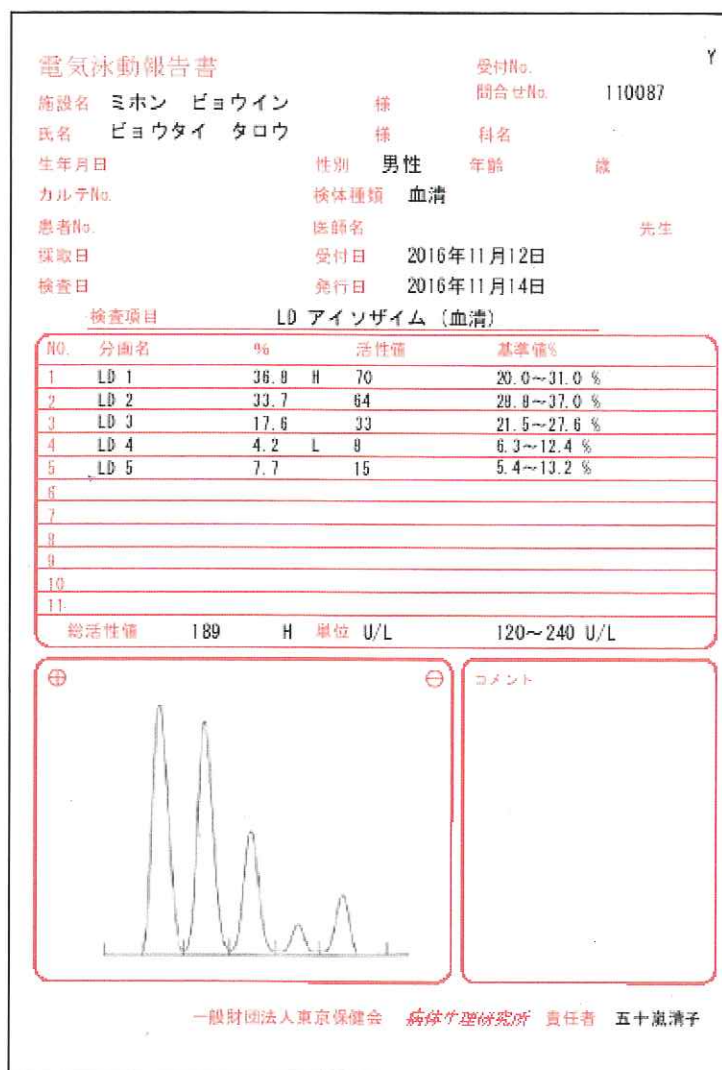 Y
電気泳動報告書 受付No.
施設名 ミホン ビョウイン 様 問合せNo. 110087
氏名 ビョウタイ タロウ 様 科名
生年月日 性別 男性 年齢 歳
カルテNo. 検体種類 血清
患者No. 医師名 先生
採取日 受付日 2016年11月12日
検査日 発行日 2016年11月14日
検査項目 LD アイソザイム (血清)
NO. 分画名 % 活性値 基準値%
1 LD 1 36.8 H 70 20.0～31.0 %
2 LD 2 33.7 64 28.8～37.0 %
3 LD 3 17.6 33 21.5～27.6 %
4 LD 4 4.2 L 8 6.3～12.4 %
5 LD 5 7.7 15 5.4～13.2 %
6
7
8
9
10
11
総活性値 189 H 単位 U/L 120～240 U/L
⊕ ⊖ コメント
一般財団法人東京保健会 病体生理研究所 責任者 五十嵐清子